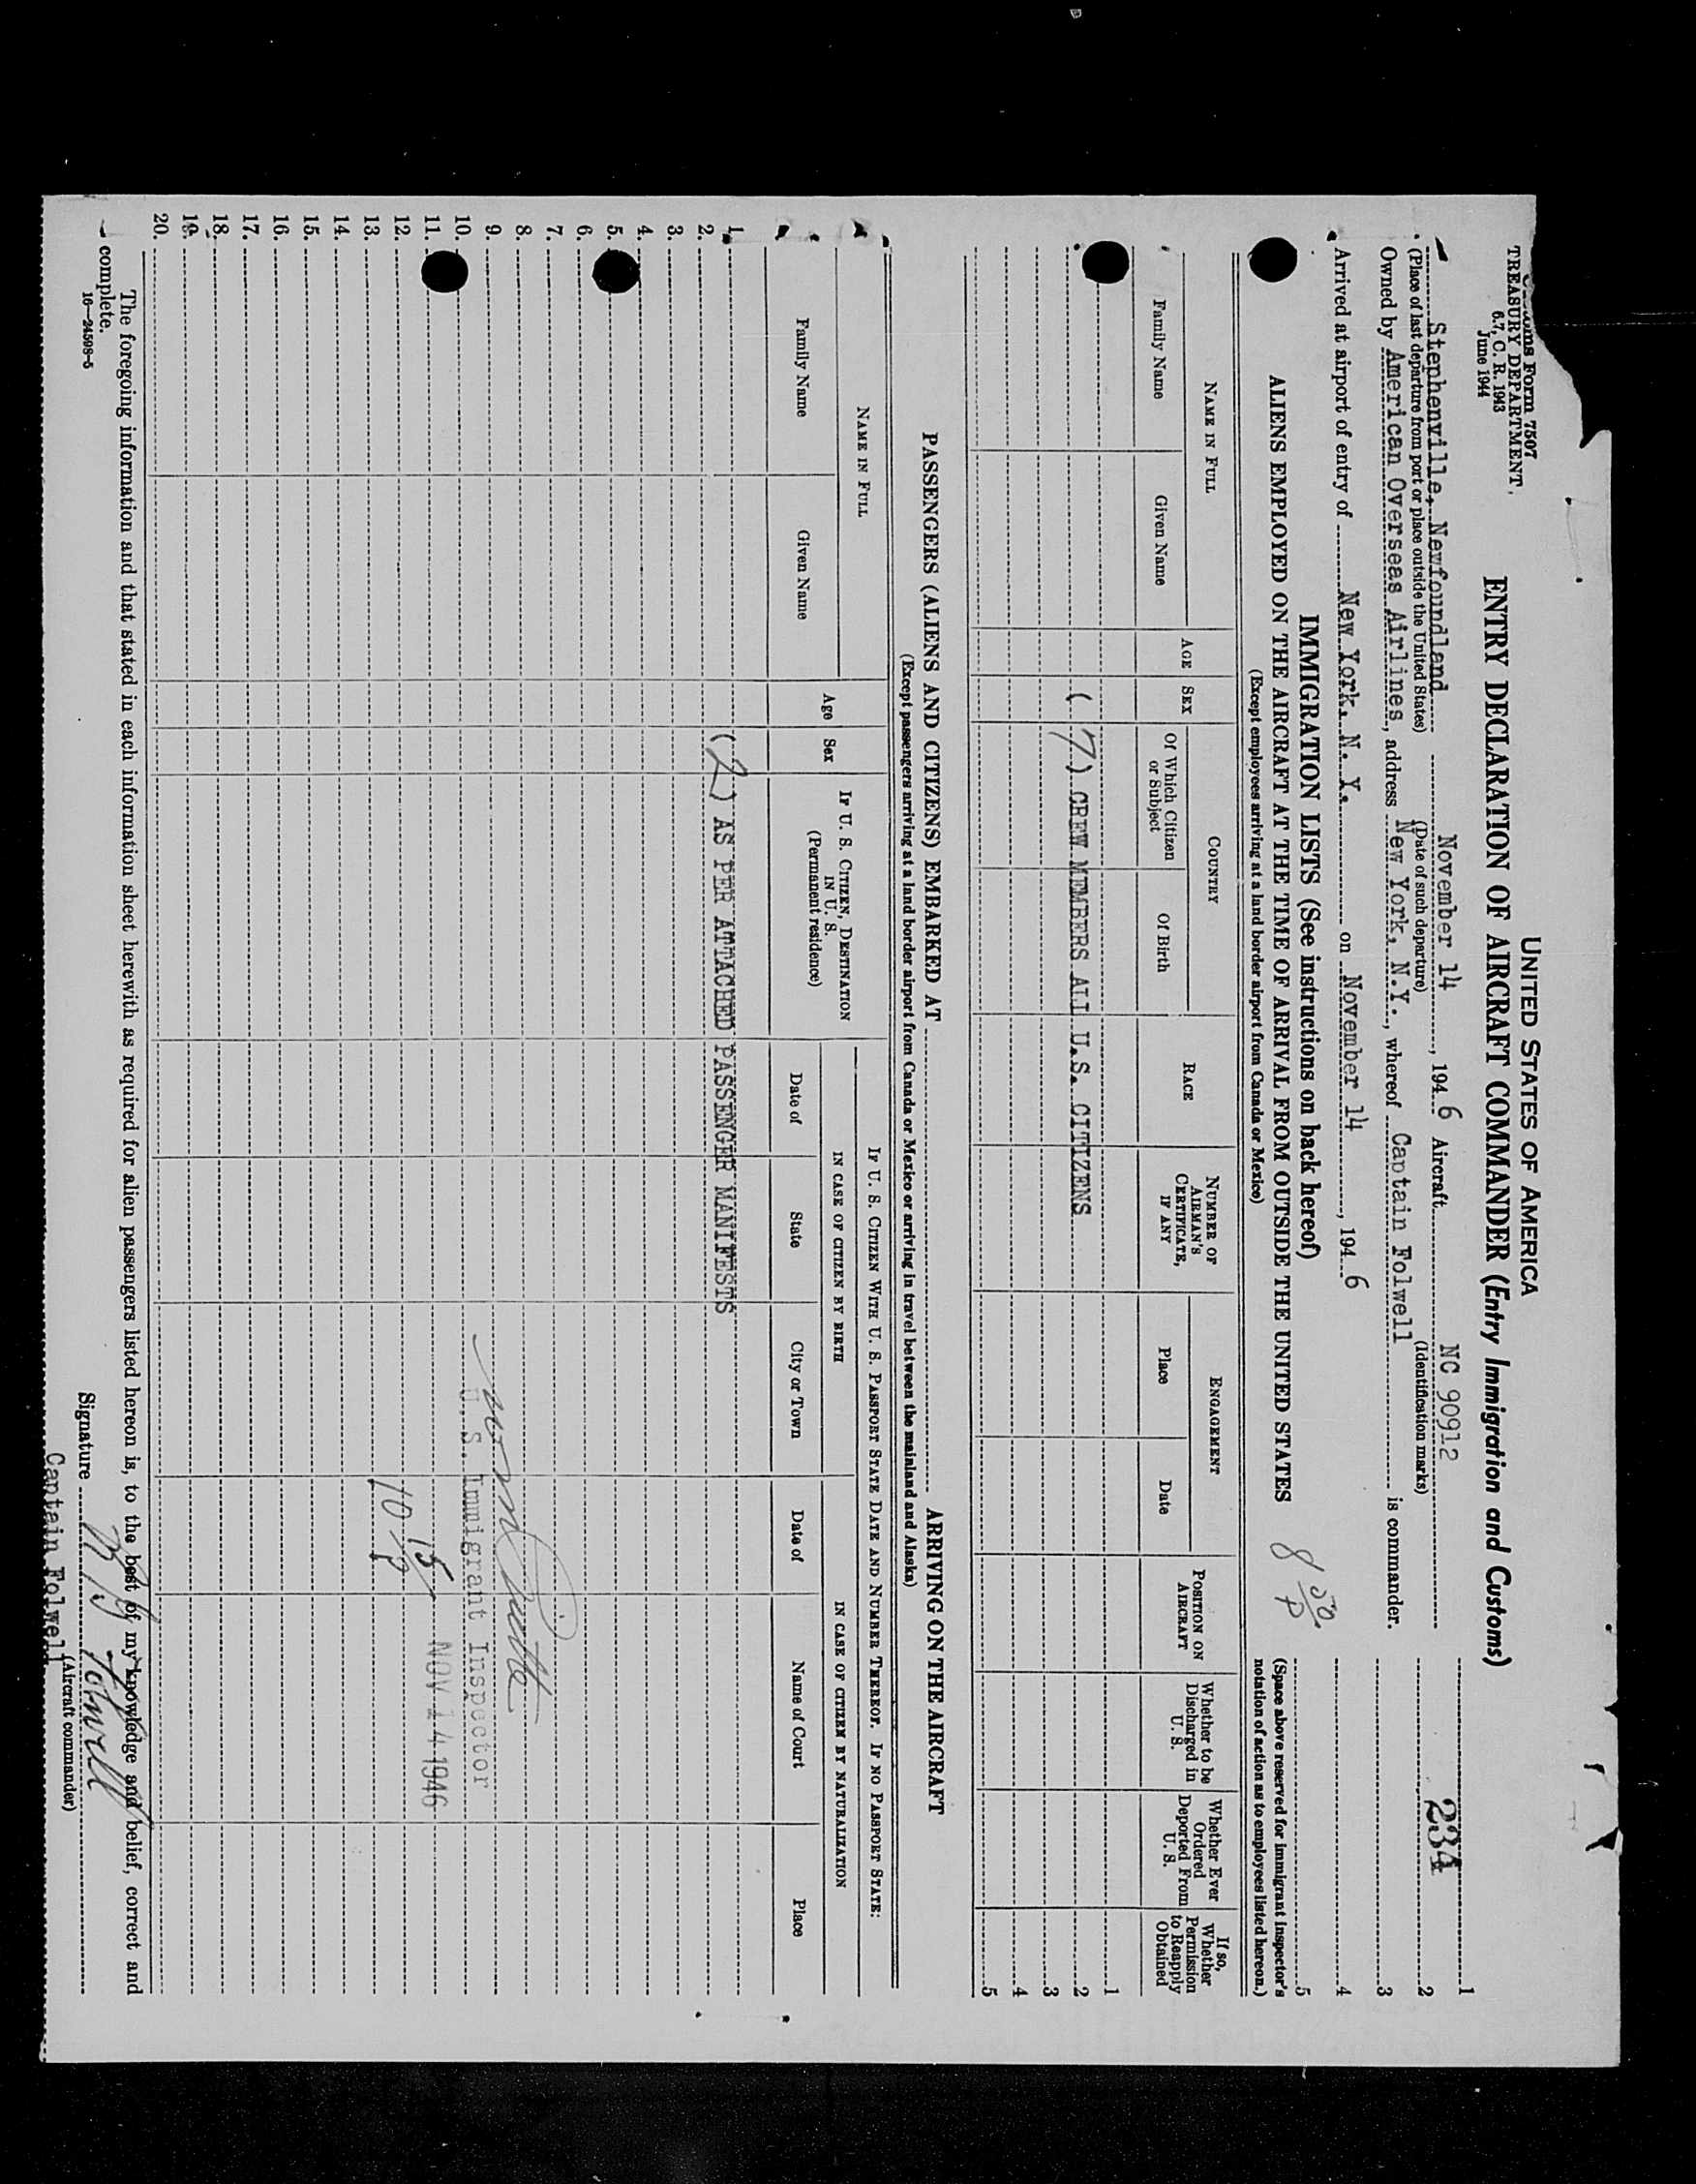 Form 7507
TREASURY DEPARTMENT,
6.7, C. R. 1943
June 1944
UNITED STATES OF AMERICA
ENTRY DECLARATION OF AIRCRAFT COMMANDER (Entry Immigration and Customs)
234
Stephenville, Newfoundland November 14, 1946 Aircraft NC 90912
(Place of last departure from port or place outside the United States) (Date of such departure) (Identification marks)
Owned by American Overseas Airlines, address New York, N.Y., whereof Captain Folwell is commander.
Arrived at airport of entry of New York, N. Y. on November 14, 1946
1
2
3
4
5
IMMIGRATION LISTS (See instructions on back hereof)
8 50/P
(Space above reserved for immigrant inspector's notation of action as to employees listed hereon.)
ALIENS EMPLOYED ON THE AIRCRAFT AT THE TIME OF ARRIVAL FROM OUTSIDE THE UNITED STATES
(Except employees arriving at a land border airport from Canada or Mexico)
NAME IN FULL
Family Name
Given Name
AGE
SEX
COUNTRY
Of Which Citizen or Subject
Of Birth
RACE
NUMBER OF AIRMAN'S CERTIFICATE, IF ANY
ENGAGEMENT
Place
Date
POSITION ON AIRCRAFT
Whether to be Discharged in U. S.
Whether Ever Ordered Deported From U. S.
If so, Whether Permission to Reapply Obtained
1
( 7 ) CREW MEMBERS ALL U.S. CITIZENS 2
3
4
5
PASSENGERS (ALIENS AND CITIZENS) EMBARKED AT ARRIVING ON THE AIRCRAFT
(Except passengers arriving at a land border airport from Canada or Mexico or arriving in travel between the mainland and Alaska)
NAME IN FULL
Family Name
Given Name
Age
Sex
IF U. S. CITIZEN, DESTINATION IN U. S. (Permanent residence)
IF U. S. CITIZEN WITH U. S. PASSPORT STATE DATE AND NUMBER THEREOF. IF NO PASSPORT STATE:
IN CASE OF CITIZEN BY BIRTH
IN CASE OF CITIZEN BY NATURALIZATION
Date of
State
City or Town
Date of
Name of Court
Place
1. (2) AS PER ATTACHED PASSENGER MANIFESTS
2.
3.
4.
5.
6.
7.
8.
9.
10. U.S. Immigrant Inspector
11. NOV 14 1946
12. 10 15/P
13.
14.
15.
16.
17.
18.
19.
20.
The foregoing information and that stated in each information sheet herewith as required for alien passengers listed hereon is, to the best of my knowledge and belief, correct and
complete.
16—24598-5
Signature Folwell
(Aircraft commander)
Captain Folwell